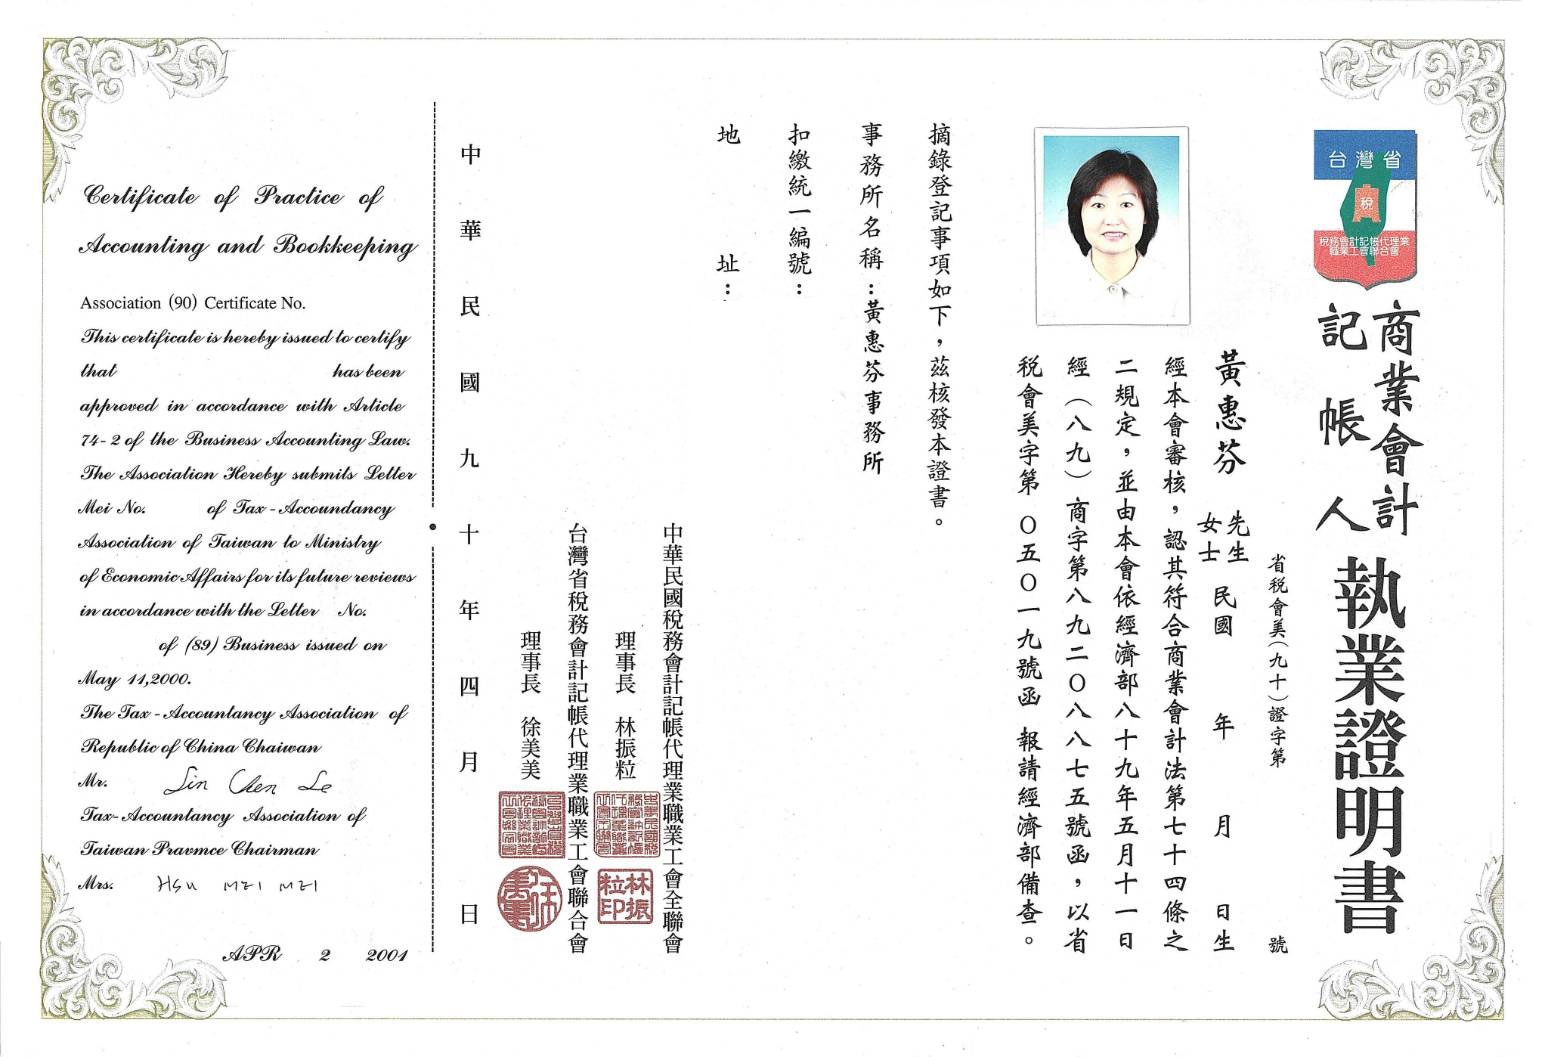 台灣省
稅
稅務會計記帳代理業
職業工會聯合會
商業會計
記帳人
執業證明書
省稅會美(九十)證字第　號
黃惠芬
先生
女士
民國　年　月　日生
經本會審核，認其符合商業會計法第七十四條之
二規定，並由本會依經濟部八十九年五月十一日
經(八九)商字第八九二０八八七五號函，以省
稅會美字第０五０一九號函 報請經濟部備查。
摘錄登記事項如下，茲核發本證書。
事務所名稱：黃惠芬事務所
扣繳統一編號：
地　址：
中華民國稅務會計記帳代理業職業工會全聯會
理事長 林振粒
林振
粒印
台灣省稅務會計記帳代理業職業工會聯合會
理事長 徐美美
中華民國九十年四月　日
Certificate of Practice of
Accounting and Bookkeeping
Association (90) Certificate No.
This certificate is hereby issued to certify
that has been
approved in accordance with Article
74-2 of the Business Accounting Law.
The Association Hereby submits Letter
Mei No. of Tax-Accoundancy
Association of Taiwan to Ministry
of Economic Affairs for its future reviews
in accordance with the Letter No.
of (89) Business issued on
May 11,2000.
The Tax-Accountancy Association of
Republic of China Chaiwan
Mr. Lin Chen Le
Tax-Accountancy Association of
Taiwan Pravmce Chairman
Mrs. HSU MEI MEI
APR 2 2001